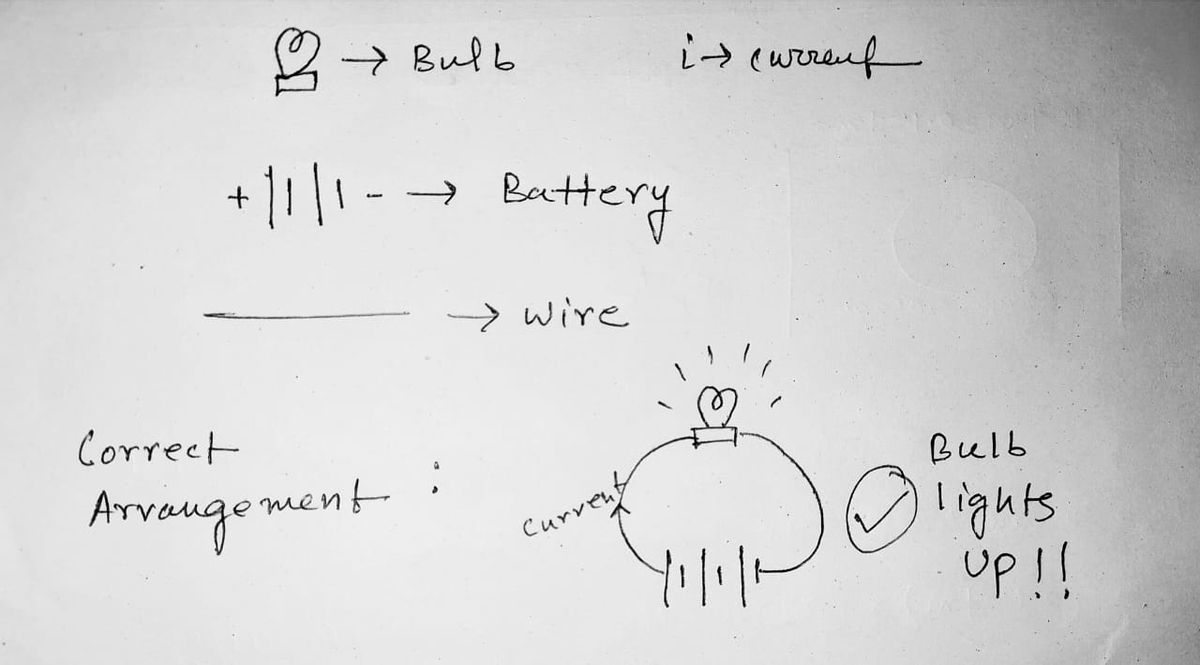 → Bulb
i → current
+ - → Battery
→ wire
Correct
Arrangement :
current
Bulb
lights
up!!